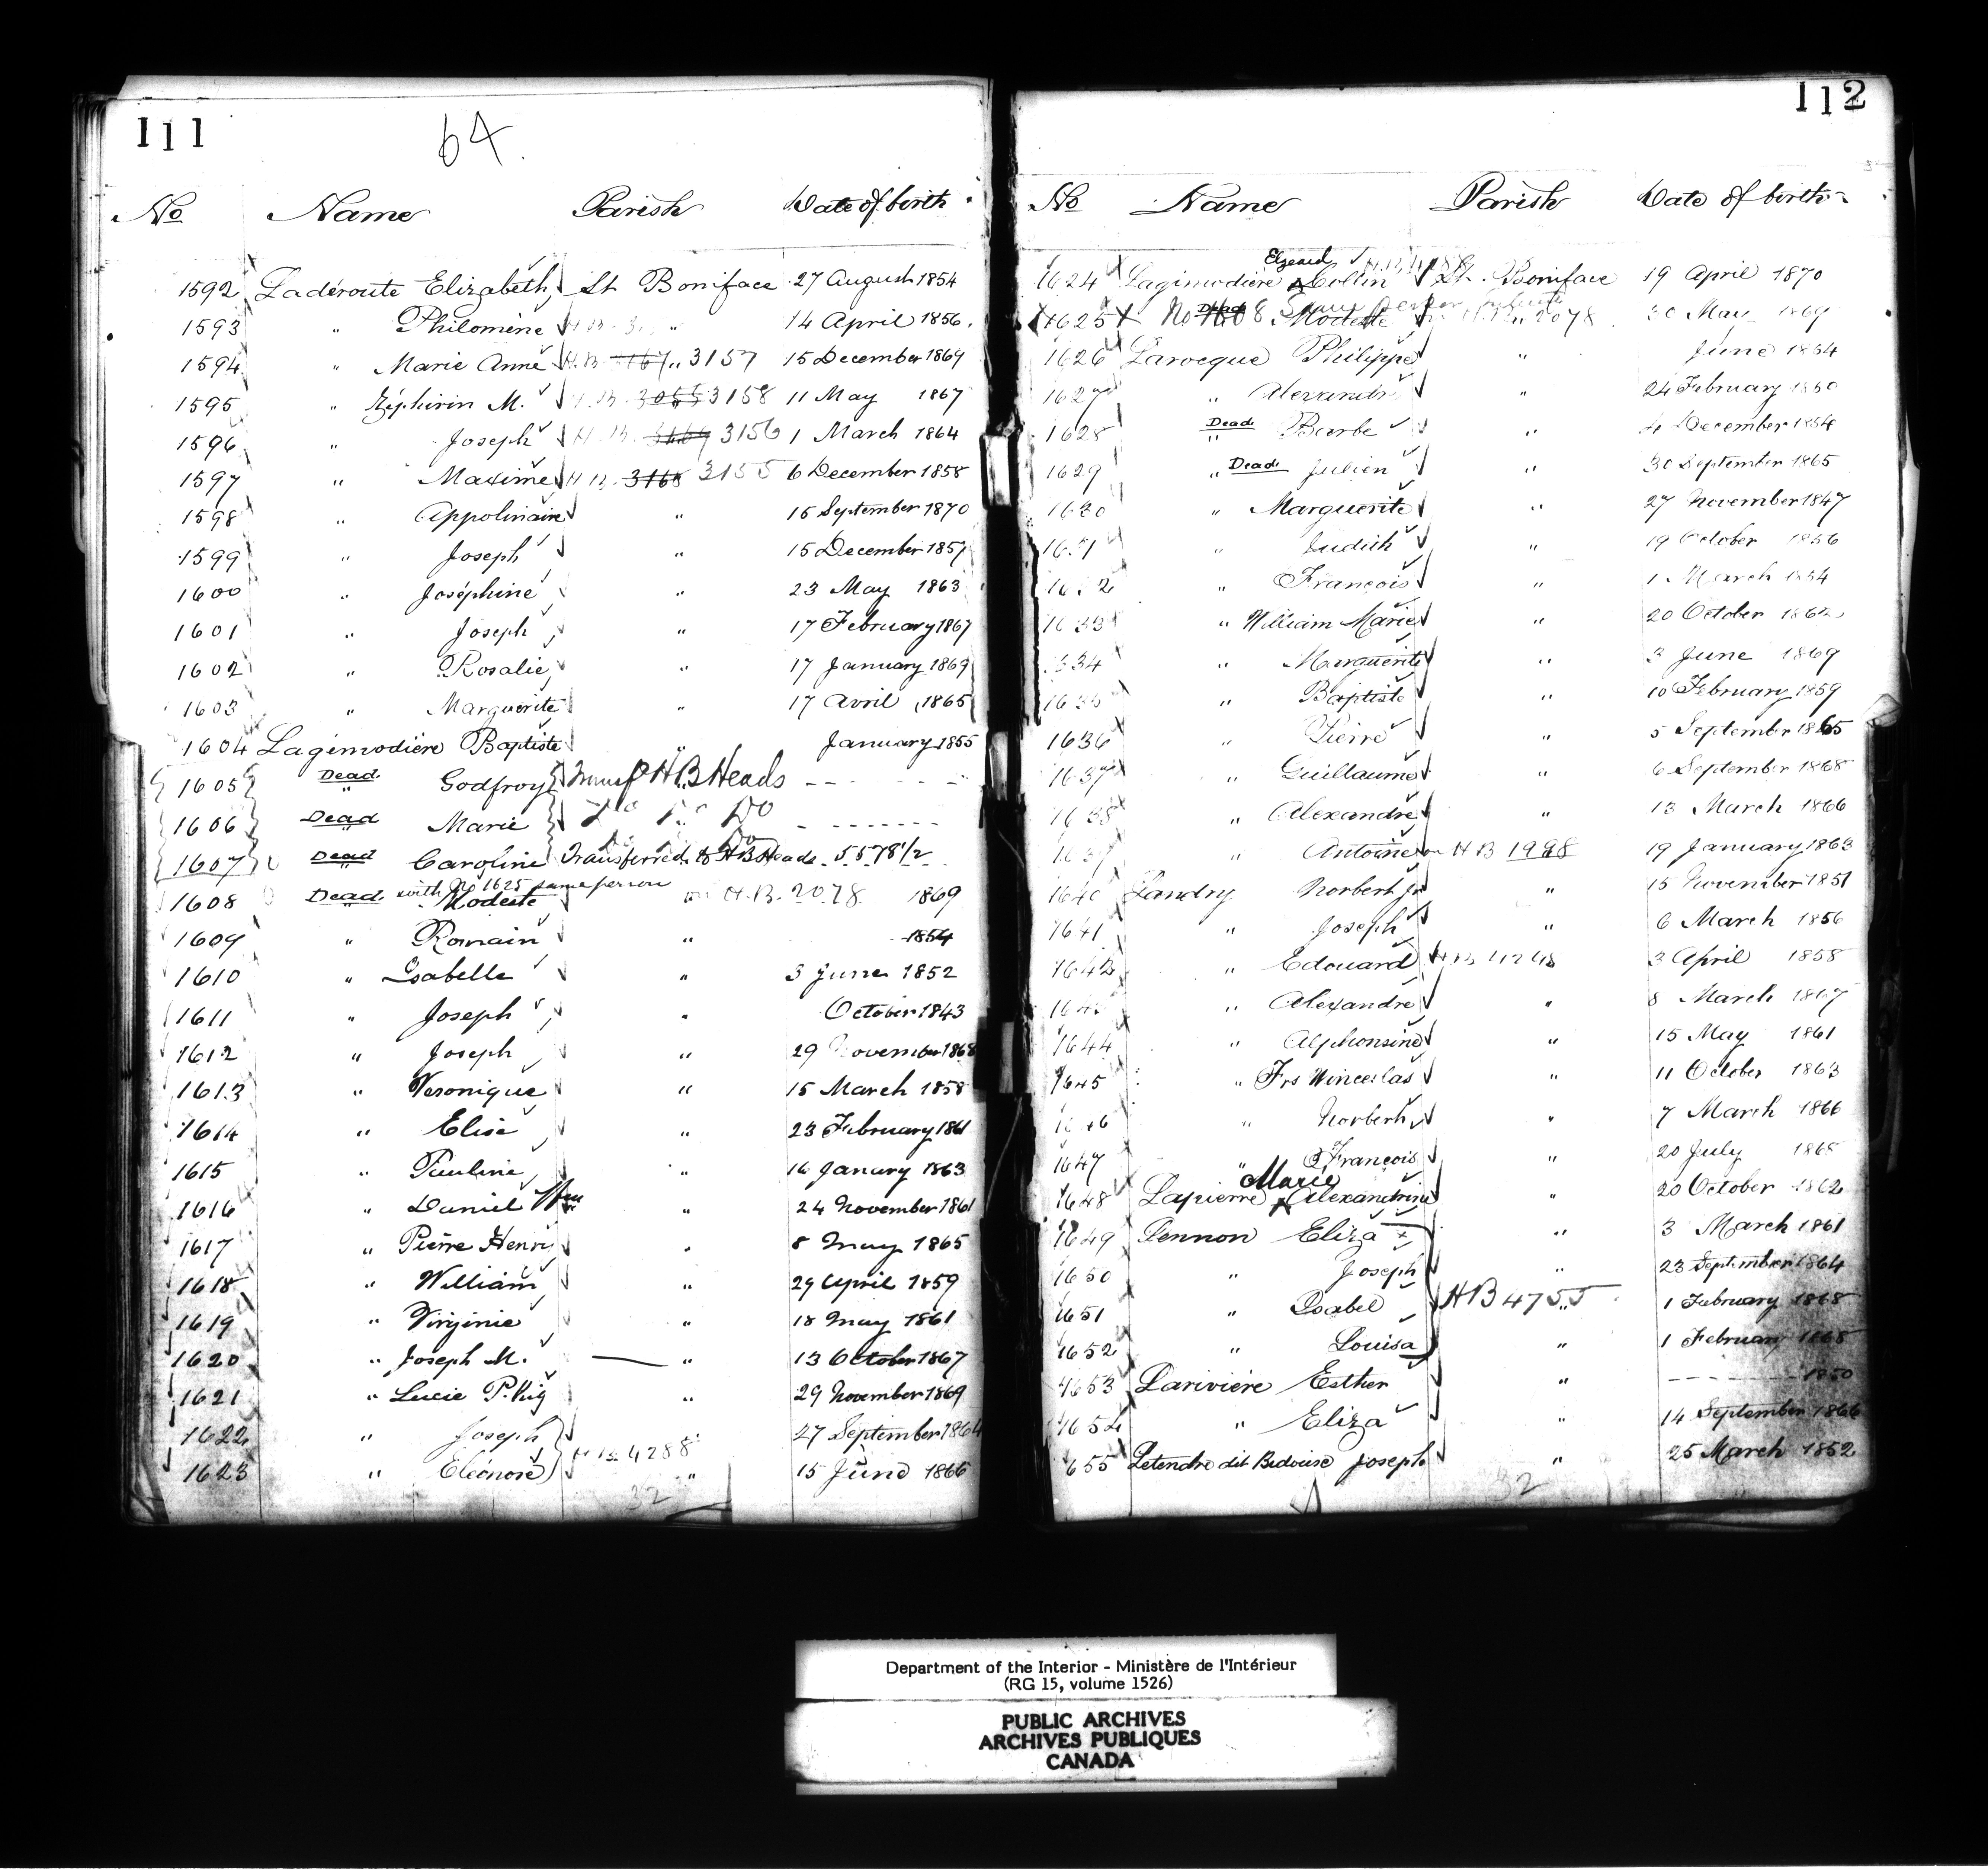 111
64.
No Name Parish Date of birth
1592 Ladéroute Elizabeth St Boniface 27 August 1854
1593 " Philomène H.B. " 14 April 1856
1594 " Marie Anne H.B. 3167 " 3157 15 December 1869
1595 " Zéphirin M. H.B. 3055 3158 11 May 1867
1596 " Joseph H.B. 3156 1 March 1864
1597 " Maxime H.B. 3168 3155 6 December 1858
1598 " Appolinaire " 15 September 1870
1599 " Joseph " 15 December 1857
1600 " Joséphine " 23 May 1863
1601 " Joseph " 17 February 1867
1602 " Rosalie " 17 January 1869
1603 " Marguerite " 17 Avril 1865
1604 Lagimodière Baptiste " January 1855
1605 Dead " Godfroy Transf HB Heads
1606 Dead " Marie Do Do Do
1607 Dead " Caroline Transferred to HB Heads 5578 1/2
1608 Dead " with No 1625 same person Modeste on H.B. 2078 1869
1609 " Romain " 1854
1610 " Isabelle " 3 June 1852
1611 " Joseph " October 1843
1612 " Joseph " 29 November 1868
1613 " Veronique " 15 March 1858
1614 " Elise " 23 February 1861
1615 " Pauline " 16 Janury 1863
1616 " Daniel Wm " 24 November 1861
1617 " Pierre Henri " 8 May 1865
1618 " William " 29 April 1859
1619 " Virginie " 18 May 1861
1620 " Joseph M. " 13 October 1867
1621 " Lucie P. " 29 November 1869
1622 " Joseph 27 September 1864
1623 " Eléonore H B 4288 " 15 June 1866
32
112
No Name Parish Date of birth
1624 Lagimodière Elzeard Collin St. Boniface 19 April 1870
1625 No 1608 Dead Same person Modeste H.B. 2078 30 May 1869
1626 Larocque Philippe " June 1854
1627 " Alexandre " 24 February 1850
1628 Dead " Barbe " 4 December 1854
1629 " Dead Julien " 30 September 1865
1630 " Marguerite " 27 November 1847
1631 " Judith " 19 October 1856
1632 " François " 1 March 1854
1633 " William Marie " 20 October 1862
1634 " Marguerite " 3 June 1869
1635 " Baptiste " 10 February 1859
1636 " Pierre " 5 September 1865
1637 " Guillaume " 6 September 1868
1638 " Alexandre " 13 March 1866
1639 " Antoine on H B 1998 19 January 1863
1640 Landry Norbert Jr " 15 November 1851
1641 " Joseph " 6 March 1856
1642 " Edouard H B 4248 3 April 1858
1643 " Alexandre " 8 March 1867
1644 " Alphonsine " 15 May 1861
1645 " Frs Winceslas " 11 October 1863
1646 " Norbert " 7 March 1866
1647 " François " 20 July 1868
1648 Lapierre Marie Alexandrine " 20 October 1862
1649 Lennon Eliza " 3 March 1861
1650 " Joseph " 23 September 1864
1651 " Isabel H B 4755 " 1 February 1868
1652 " Louisa " 1 February 1868
1653 Larivière Esther " 1850
1654 " Eliza " 14 September 1866
1655 Letendre dit Batoise Joseph " 25 March 1852
32
Department of the Interior - Ministère de l'Intérieur
(RG 15, volume 1526)
PUBLIC ARCHIVES
ARCHIVES PUBLIQUES
CANADA